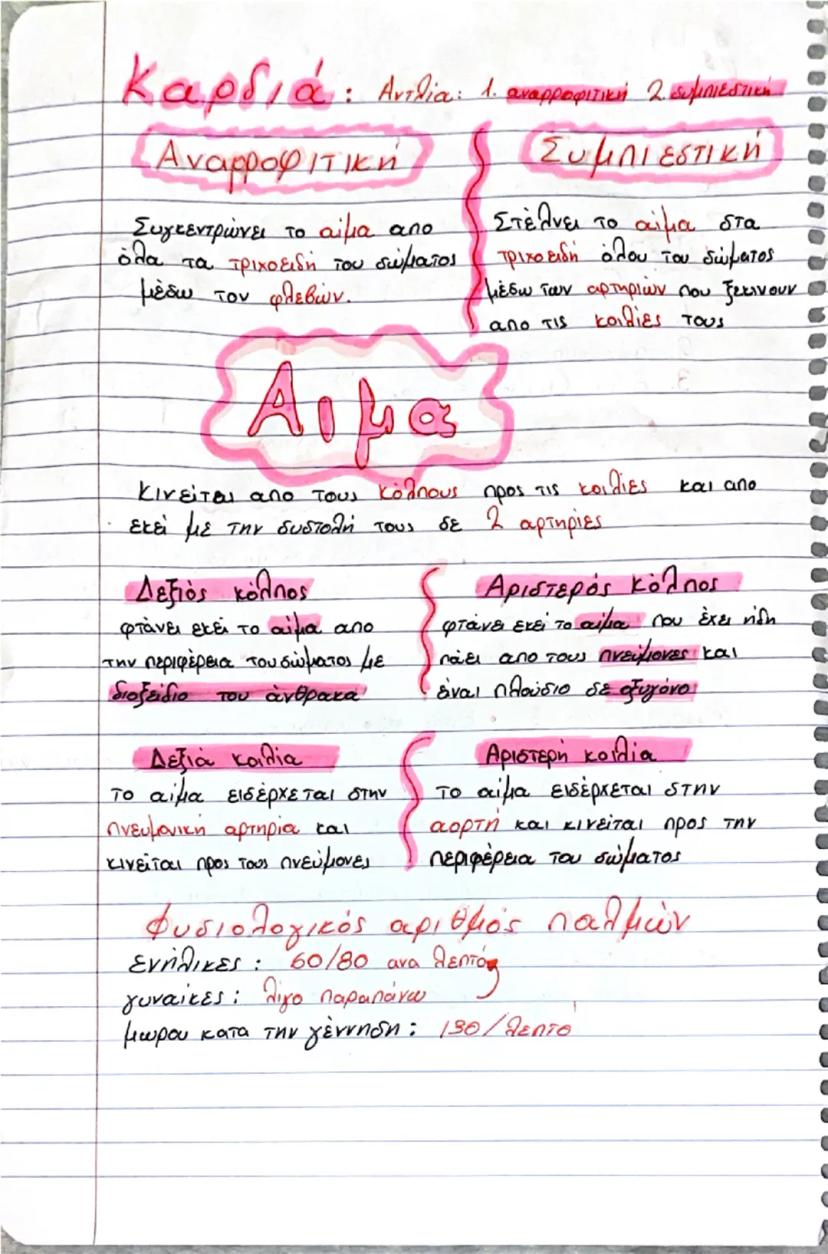 Καρδιά: Αντλία: 1. αναρροφιτική 2. συμπιεστική
Αναρροφιτική
Συγκεντρώνει το αίμα απο
όλα τα τριχοειδή του σώματος
μέσω τον φλεβών.
Συμπιεστική
Στέλνει το αίμα στα
τριχοειδή όλου του σώματος
μέσω των αρτηριών που ξεκινουν
απο τις κοιλίες τους
Αιμα
Κινείται απο τους κόλπους προς τις κοιλίες και απο
εκεί με την συστολή τους σε 2 αρτηρίες
Δεξιός κόλπος
φτάνει εκεί το αίμα απο
την περιφέρεια του σώματος με
διοξείδιο του άνθρακα
Αριστερός κόλπος
φτάνει εκεί το αίμα που έχει ήδη
πάει απο τους πνεύμονες και
είναι πλούσιο σε οξυγόνο
Δεξιά κοιλία
το αίμα εισέρχεται στην
πνευμονική αρτηρία και
κινείται προς τους πνεύμονες
Αριστερή κοιλία
το αίμα εισέρχεται στην
αορτή και κινείται προς την
περιφέρεια του σώματος
Φυσιολογικός αριθμός παλμών
ενήλικες: 60/80 ανα λεπτό
γυναίκες: λίγο παραπάνω
μωρου κατα την γέννηση: 130/λεπτό